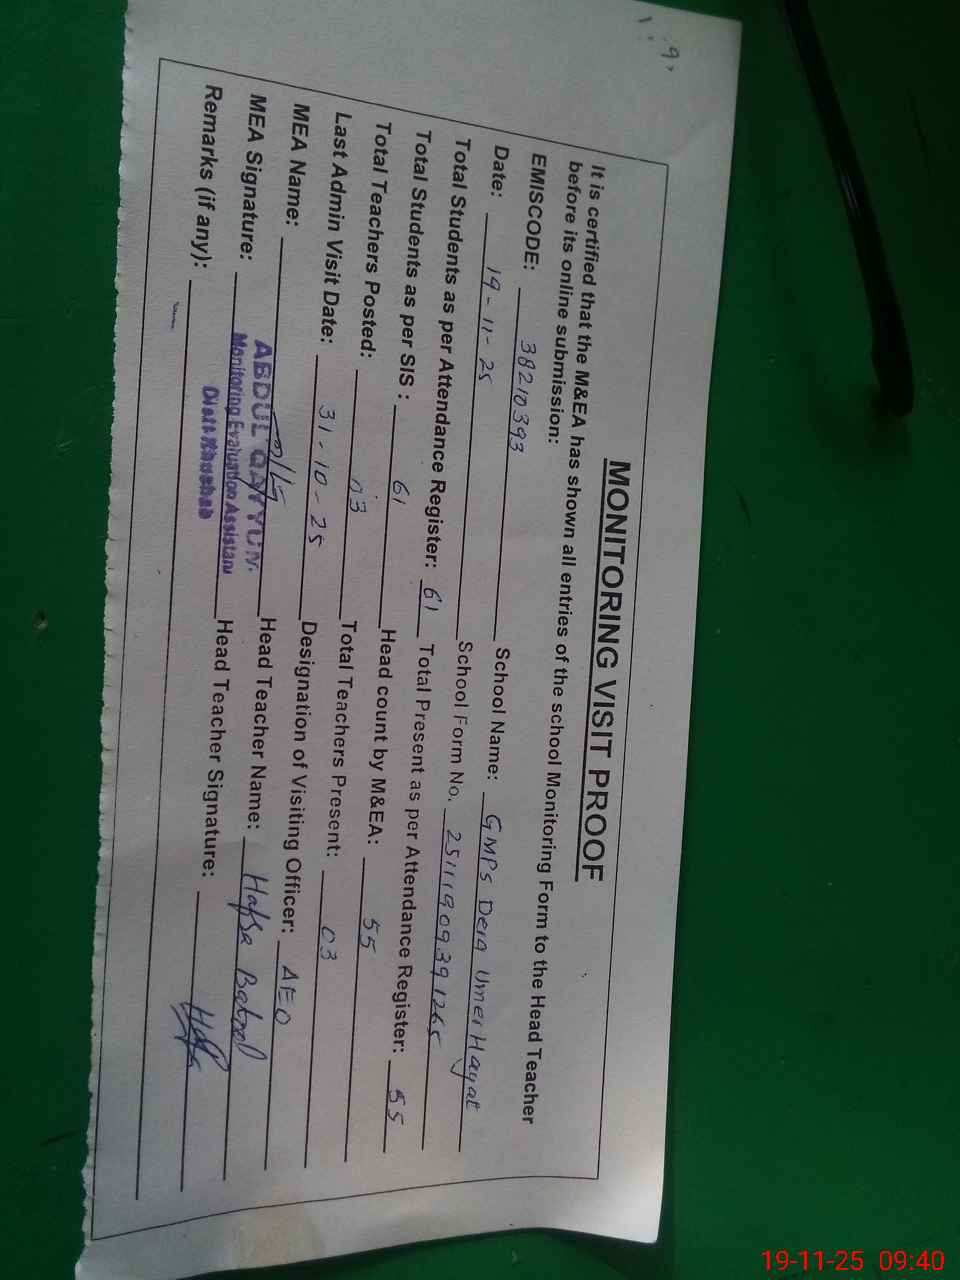 MONITORING VISIT PROOF
It is certified that the M&EA has shown all entries of the school Monitoring Form to the Head Teacher
before its online submission:
EMISCODE: 38210393 School Name: GMPS Dera Umer Hayat
Date: 19-11-25 School Form No. 25111909391265
Total Students as per Attendance Register: 61 Total Present as per Attendance Register: 55
Total Students as per SIS : 61 Head count by M&EA: 55
Total Teachers Posted: 03 Total Teachers Present: 03
Last Admin Visit Date: 31-10-25 Designation of Visiting Officer: AEO
MEA Name: Head Teacher Name: Hafsa Batool
MEA Signature: Head Teacher Signature: Hafsa
ABDUL QAYYUM
Monitoring Evaluation Assistant
Distt Khushab
Remarks (if any):
19-11-25 09:40